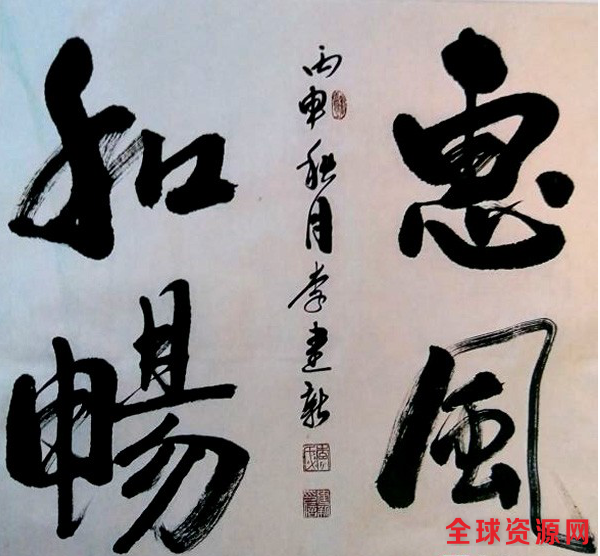 惠風
和暢
丙申秋月李建新
全球资源网